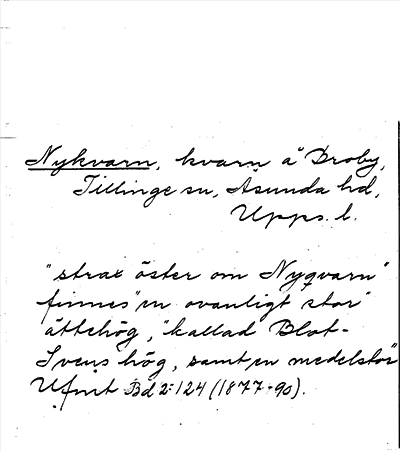 Nykvarn, kvarn å Broby,
Tillinge sn, Åsunda hd,
Upps. l.
"strax öster om Nyqvarn"
finnes "en ovanligt stor
ättehög, "kallad Blot-
Svens hög, samt en medelstor"
Ufmt Bd 2:124 (1877-90).